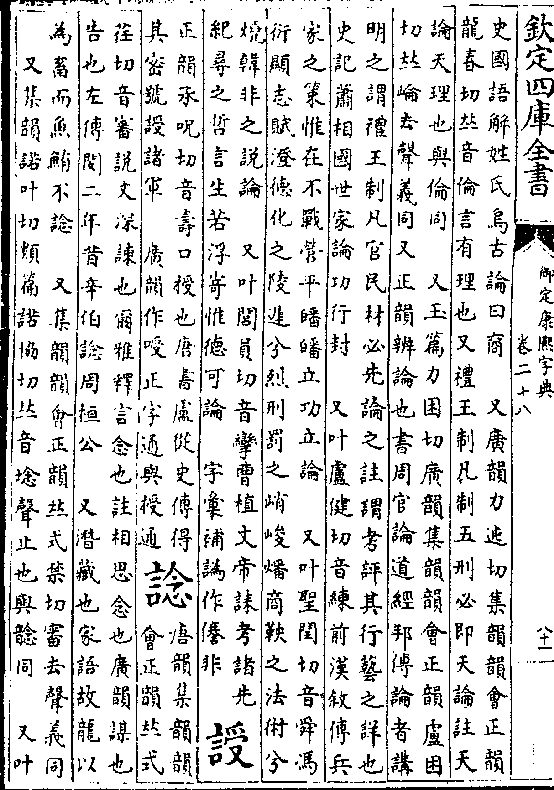 欽定四庫全書
御定康熙字典
卷二十八
八十一
史國語解姓氏烏古論曰商　又廣韻力迍切集韻韻會正韻
龍春切𠀤音倫言有理也又禮王制凡制五刑必即天論註天
論天理也與倫同　又玉篇力困切廣韻集韻韻會正韻盧困
切𠀤崘去聲義同又正韻辨論也書周官論道經邦傳論者講
明之謂禮王制凡官民材必先論之註謂考評其行藝之詳也
史記蕭相國世家論功行封　又叶盧健切音練前漢敘傳兵
家之策惟在不戰營平皤皤立功立論　又叶聖閏切音舜馮
衍顯志賦澄德化之陵遲兮烈刑罰之峭峻燔商鞅之法術兮
燒韓非之說論　又叶閭員切音攣曹植文帝誄考諸先
紀尋之哲言生若浮寄惟德可論　字彙補譌作㒍非　䛵
正韻承呪切音壽口授也唐書盧從史傳得
其密號䛵諸軍　廣韻作㖟正字通與授通　諗　唐韻集韻韻
會正韻𠀤式
荏切音審說文深諫也爾雅釋言念也註相思念也廣韻謀也
告也左傳閔二年昔辛伯諗周桓公　又潛藏也家語故龍以
為畜而魚鮪不諗　又集韻韻會正韻𠀤式禁切審去聲義同
又集韻諾叶切類篇諾協切𠀤音埝聲止也與䛼同　又叶